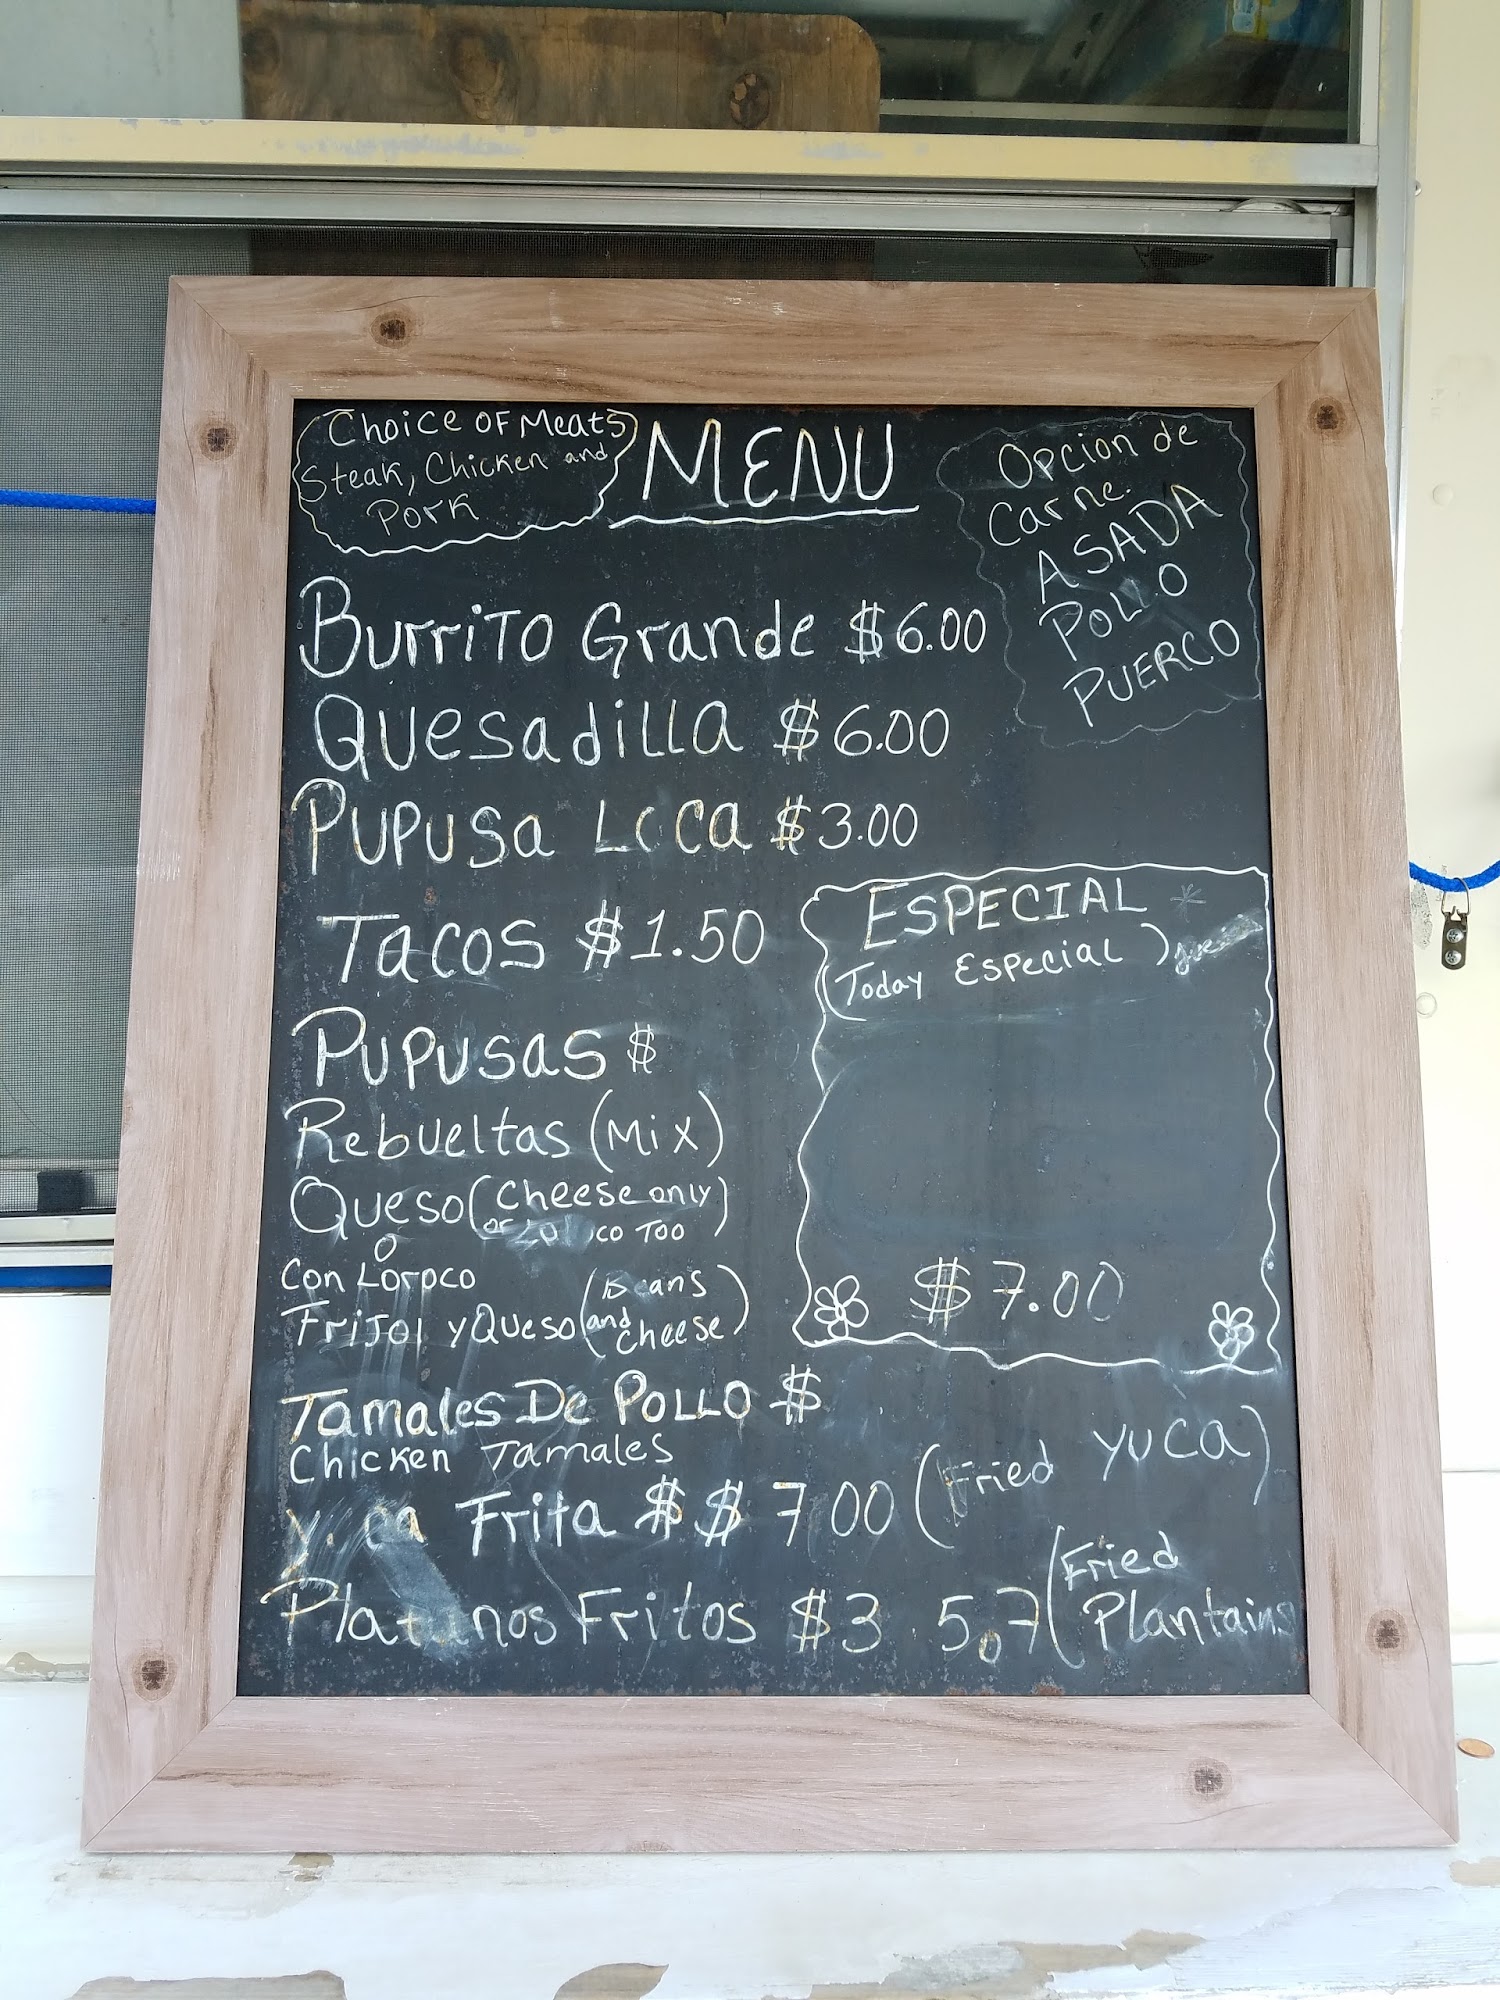 Choice OF Meats
Steak, Chicken and
Pork
MENU
Opcion de
Carne.
ASADA
POLLO
PUERCO
Burrito Grande $6.00
Quesadilla $6.00
Pupusa Loca $3.00
Tacos $1.50
ESPECIAL *
(Today Especial)
$7.00
Pupusas $
Rebueltas (Mix)
Queso (Cheese only
or co Too)
O
Con Loroco
Frijol y Queso (Beans
and cheese)
Tamales De Pollo $
Chicken Tamales
Frita $ $ 7 00 (Fried yuca)
Platanos Fritos $3 5,7 (Fried
Plantains